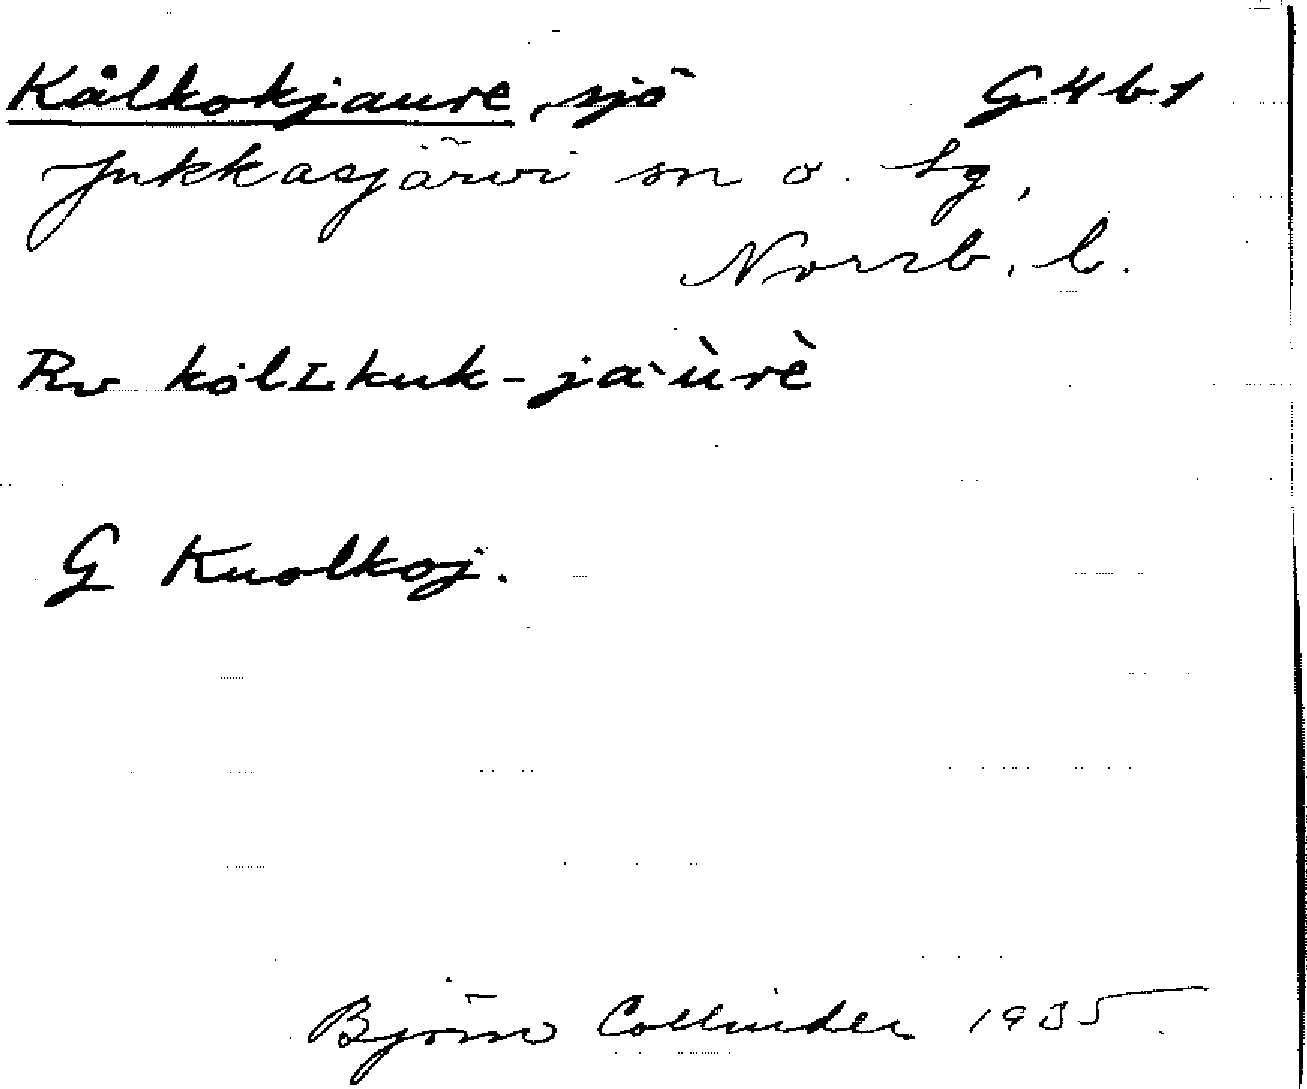 Kålkokjaure, sjö G 4 b 1
Jukkasjärvi sn o. tg,
Norrb. l.
Rv kålʟkuk-jaùrè
G Kuolkoj.
Björn Collinder 1935